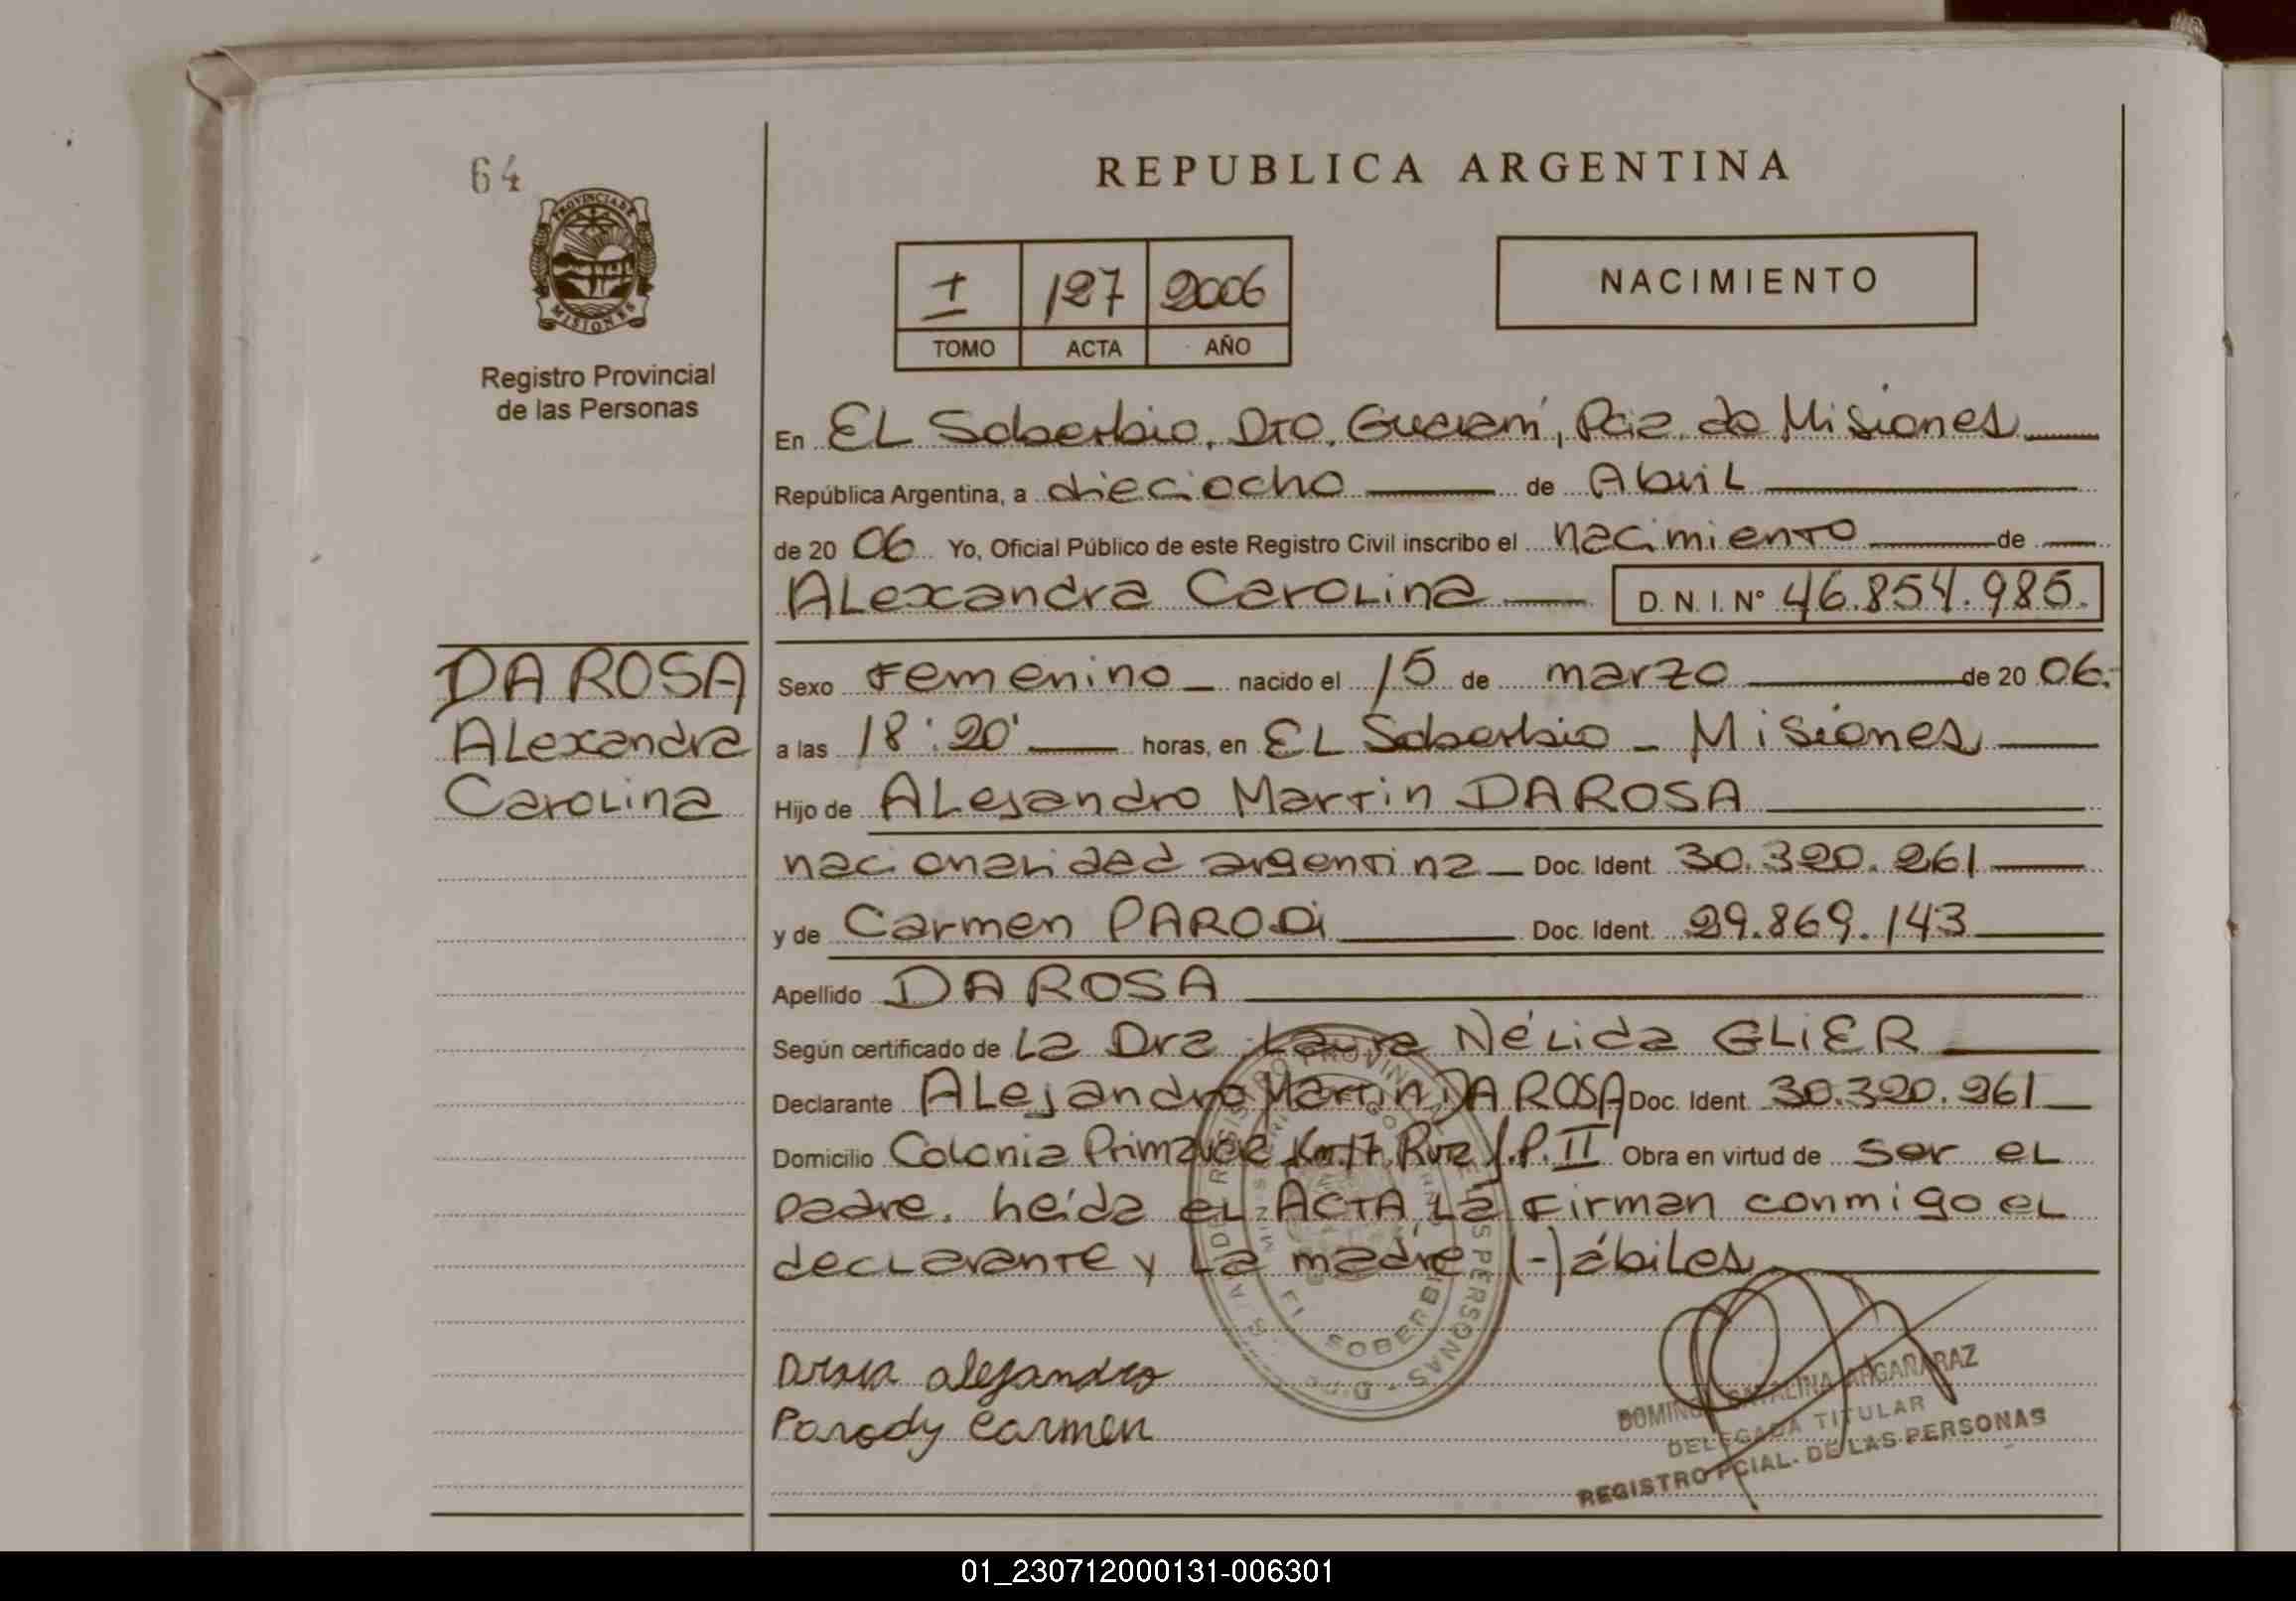 64
REPUBLICA ARGENTINA
PROVINCIA DE
MISIONES
I 127 2006
TOMO ACTA AÑO
NACIMIENTO
Registro Provincial
de las Personas
En EL Soberbio, Dto. Guaraní, Pcia. de Misiones
República Argentina, a dieciocho de Abril
de 2006 Yo, Oficial Público de este Registro Civil inscribo el nacimiento de
ALexandra CaroLina D.N.I. Nº 46.854.985.
DA ROSA
ALexandra
CaroLina
Sexo Femenino nacido el 15 de marzo de 2006.
a las 18:20' horas, en EL Soberbio - Misiones
Hijo de ALejandro Martin DA ROSA
nacionalidad argentina Doc. Ident. 30.320.261
y de Carmen PARODi Doc. Ident. 29.869.143
Apellido DA ROSA
Según certificado de La Dra Laura NéLida GLiER
Declarante ALejandro Martin DA ROSA Doc. Ident. 30.320.261
Domicilio Colonia Primavera Km.17. Ruta J.P.II Obra en virtud de ser eL
padre. Leída eL ACTA, La firman conmigo eL
decLarante y La madre (-) ábiles
alejandro
Parody Carmen
EL SOBERBIO
DOMINGA CATALINA ARGAÑARAZ
DELEGADA TITULAR
REGISTRO PCIAL. DE LAS PERSONAS
01_230712000131-006301